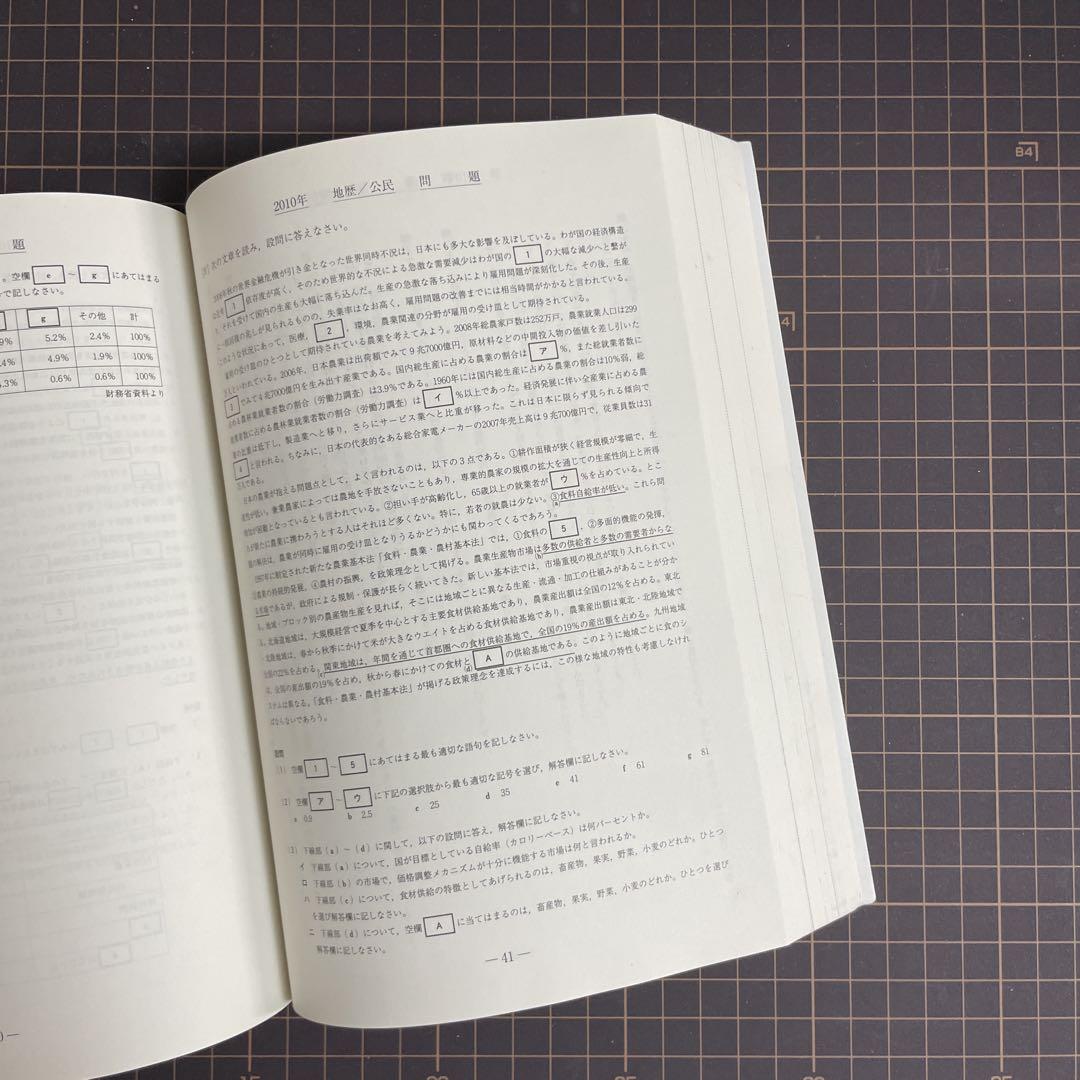 題
。空欄 e ～ g にあてはまる
で記しなさい。
g その他 計
9% 5.2% 2.4% 100%
.4% 4.9% 1.9% 100%
.3% 0.6% 0.6% 100%
財務省資料より
2010年 地歴／公民 問 題
次の文章を読み，設問に答えなさい。
2008年秋の世界金融危機が引き金となった世界同時不況は，日本にも多大な影響を及ぼしている。わが国の経済構造
1 依存度が高く，そのため世界的な不況による急激な需要減少はわが国の 1 の大幅な減少へと繋が
，それを受けて国内の生産も大幅に落ち込んだ。生産の急激な落ち込みにより雇用問題が深刻化した。その後，生産
回復の兆しが見られるものの，失業率はなお高く，雇用問題の改善までには相当時間がかかると言われている。
このような状況にあって，医療， 2 ，環境，農業関連の分野が雇用の受け皿として期待されている。
雇用の受け皿のひとつとして期待されている農業を考えてみよう。2008年総農家戸数は252万戸，農業就業人口は299
万人といわれている。2006年，日本農業は出荷額でみて9兆7000億円，原材料などの中間投入物の価値を差し引いた
3 でみて4兆7000億円を生み出す産業である。国内総生産に占める農業の割合は ア %，また総就業者数に
占める農林業就業者数の割合（労働力調査）は3.9%である。1960年には国内総生産に占める農業の割合は10%弱，総
就業者数に占める農林業就業者数の割合（労働力調査）は イ %以上であった。経済発展に伴い全産業に占める農
業の比重は低下し，製造業へと移り，さらにサービス業へと比重が移った。これは日本に限らず見られる傾向で
4 と言われる。ちなみに，日本の代表的なある総合家電メーカーの2007年売上高は9兆700億円で，従業員数は31
万人である。
日本の農業が抱える問題点として，よく言われるのは，以下の3点である。①耕作面積が狭く経営規模が零細で，生
産性が低い。兼業農家によっては農地を手放さないこともあり，専業的農家の規模の拡大を通じての生産性向上と所得
増加が困難となっているとも言われている。②担い手が高齢化し，65歳以上の就業者が ウ %を占めている。とこ
ろが新たに農業に携わろうとする人はそれほど多くない。特に，若者の就農は少ない。③食料自給率が低い。これら問
(a)
題の解決は，農業が同時に雇用の受け皿となりうるかどうかにも関わってくるであろう。
1997年に制定された新たな農業基本法「食料・農業・農村基本法」では，①食料の 5 ，②多面的機能の発揮，
③農業の持続的発展，④農村の振興，を政策理念として掲げる。農業生産物市場は多数の供給者と多数の需要者からな
(b)
る市場であるが，政府による規制・保護が長らく続いてきた。新しい基本法では，市場重視の視点が取り入れられてい
る。地域・ブロック別の農産物生産を見れば，そこには地域ごとに異なる生産・流通・加工の仕組みがあることが分か
る。北海道地域は，大規模経営で夏季を中心とする主要食材供給基地であり，農業産出額は全国の12%を占める。東北
・北陸地域は，春から秋季にかけて米が大きなウエイトを占める食材供給基地であり，農業産出額は東北・北陸地域で
全国の22%を占める。関東地域は，年間を通じて首都圏への食材供給基地で，全国の19%の産出額を占める。九州地域
(c)
は，全国の産出額の19%を占め，秋から春にかけての食材と A の供給基地である。このように地域ごとに食のシ
(d)
ステムは異なる。「食料・農業・農村基本法」が掲げる政策理念を達成するには，この様な地域の特性も考慮しなけれ
ばならないであろう。
設問
(1) 空欄 1 ～ 5 にあてはまる最も適切な語句を記しなさい。
(2) 空欄 ア ～ ウ に下記の選択肢から最も適切な記号を選び，解答欄に記しなさい。
a 0.9 b 2.5 c 25 d 35 e 41 f 61 g 81
(3) 下線部（a）～（d）に関して，以下の設問に答え，解答欄に記しなさい。
イ 下線部（a）について，国が目標としている自給率（カロリーベース）は何パーセントか。
ロ 下線部（b）の市場で，価格調整メカニズムが十分に機能する市場は何と言われるか。
ハ 下線部（c）について，食材供給の特徴としてあげられるのは，畜産物，果実，野菜，小麦のどれか。ひとつ
を選び解答欄に記しなさい。
ニ 下線部（d）について，空欄 A に当てはまるのは，畜産物，果実，野菜，小麦のどれか。ひとつを選び
解答欄に記しなさい。
— 41 —
B4
A4
15
20
25